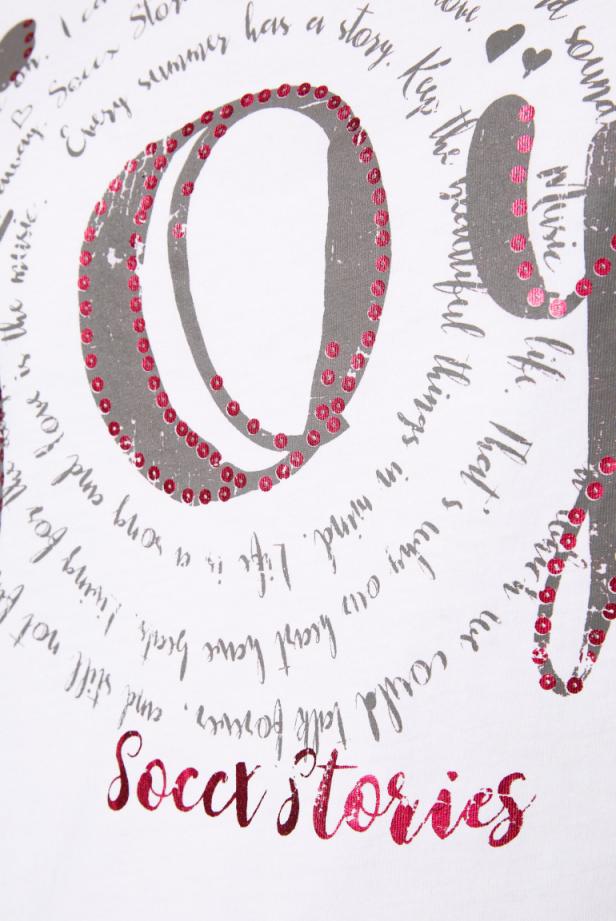 oy
Every summer has a story. Keep the beautiful things in mind. Life is a song and love is the music.
Music life. That's why our heart have beats. Living for the
we could talk forever, and still not
on. I
away. Soccx Stor
love.
d sound
Soccx Stories